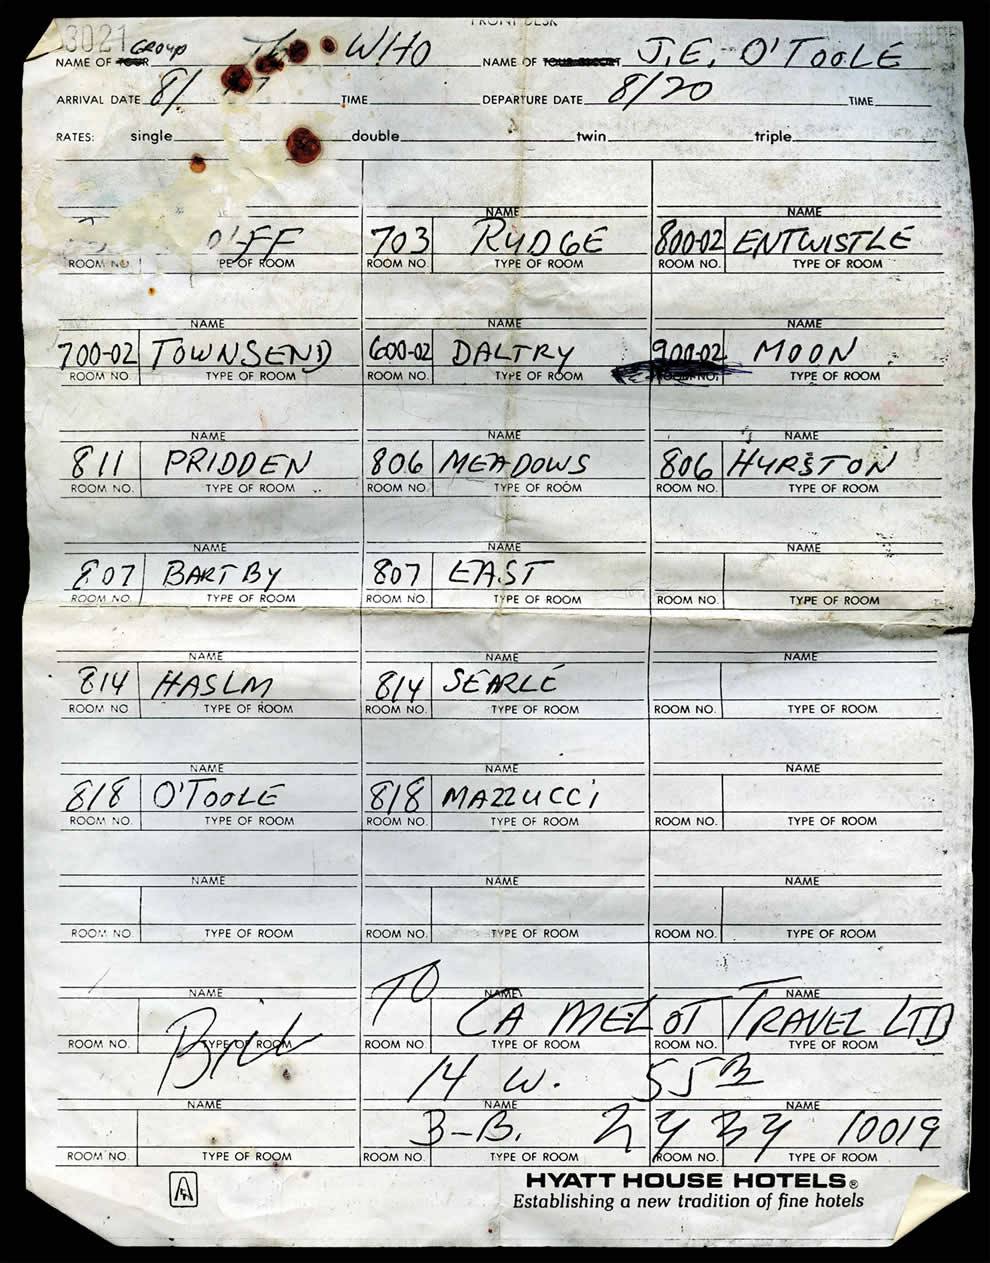 FRONT DESK
3021 GROUP
NAME OF TOUR The WHO NAME OF TOUR ESCORT J.E. O'TOOLE
ARRIVAL DATE 8/ TIME DEPARTURE DATE 8/20 TIME
RATES: single double twin triple
NAME NAME
703 RUDGE 800-02 ENTWISTLE
ROOM NO. TYPE OF ROOM ROOM NO. TYPE OF ROOM ROOM NO. TYPE OF ROOM
NAME NAME NAME
700-02 TOWNSEND 600-02 DALTRY 900-02 MOON
ROOM NO. TYPE OF ROOM ROOM NO. TYPE OF ROOM ROOM NO. TYPE OF ROOM
NAME NAME NAME
811 PRIDDEN 806 MEADOWS 806 HURSTON
ROOM NO. TYPE OF ROOM ROOM NO. TYPE OF ROOM ROOM NO. TYPE OF ROOM
NAME NAME NAME
807 BARTBY 807 EAST
ROOM NO. TYPE OF ROOM ROOM NO. TYPE OF ROOM ROOM NO. TYPE OF ROOM
NAME NAME NAME
814 HASLM 814 SEARLE
ROOM NO TYPE OF ROOM ROOM NO. TYPE OF ROOM ROOM NO. TYPE OF ROOM
NAME NAME NAME
818 O'TOOLE 818 MAZZUCCI
ROOM NO. TYPE OF ROOM ROOM NO. TYPE OF ROOM ROOM NO. TYPE OF ROOM
NAME NAME NAME
ROOM NO. TYPE OF ROOM ROOM NO. TYPE OF ROOM ROOM NO. TYPE OF ROOM
NAME NAME NAME
Bill TO CAMELOT TRAVEL LTD
ROOM NO. TYPE OF ROOM ROOM NO. TYPE OF ROOM ROOM NO. TYPE OF ROOM
14 W. 55
NAME NAME NAME
3-B. NY NY 10019
ROOM NO. TYPE OF ROOM ROOM NO. TYPE OF ROOM ROOM NO. TYPE OF ROOM
HYATT HOUSE HOTELS®
Establishing a new tradition of fine hotels